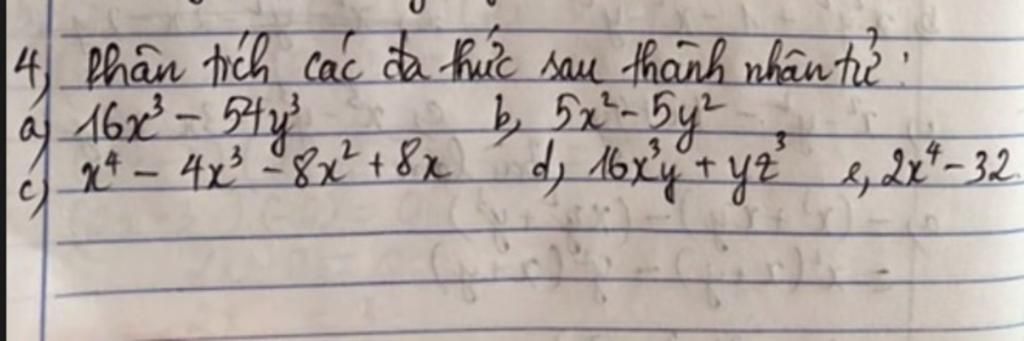 4, Phân tích các đa thức sau thành nhân tử:
a, 16x³ - 54y³ b, 5x² - 5y²
c, x⁴ - 4x³ - 8x² + 8x d, 16x³y + yz³ e, 2x⁴ - 32